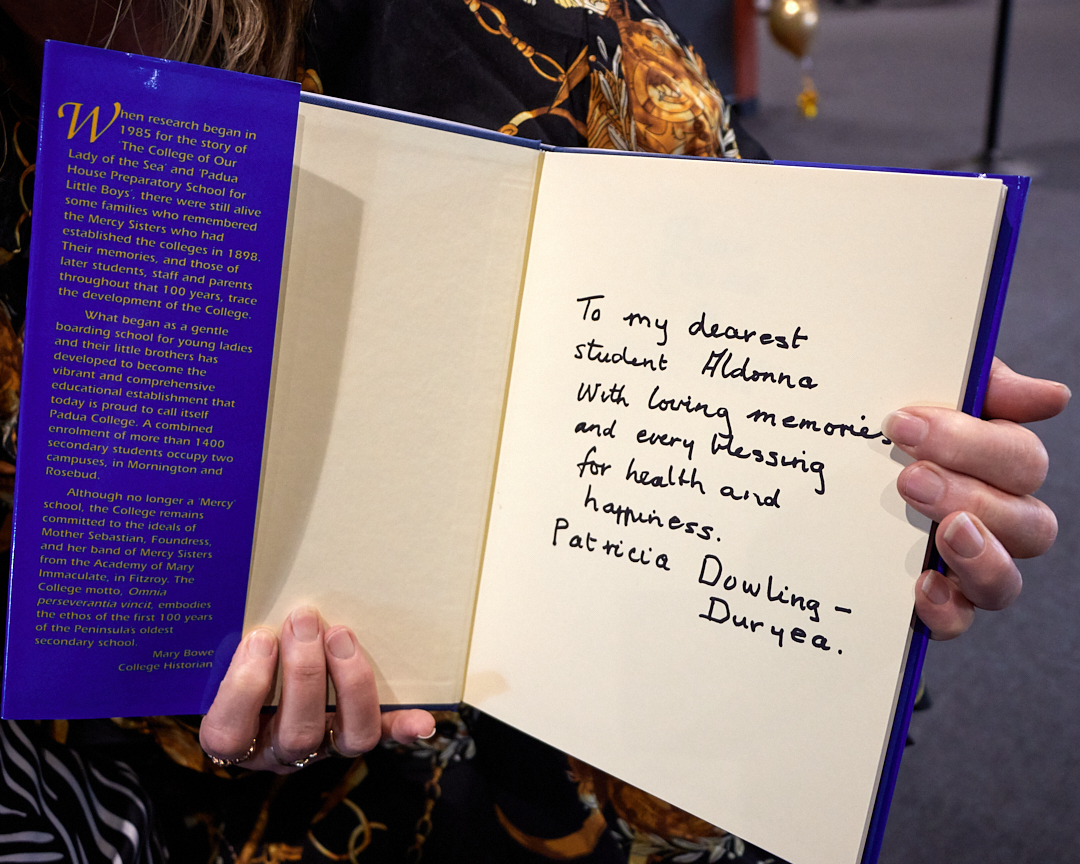 When research began in
1985 for the story of
'The College of Our
Lady of the Sea' and 'Padua
House Preparatory School for
Little Boys', there were still alive
some families who remembered
the Mercy Sisters who had
established the colleges in 1898.
Their memories, and those of
later students, staff and parents
throughout that 100 years, trace
the development of the College.
What began as a gentle
boarding school for young ladies
and their little brothers has
developed to become the
vibrant and comprehensive
educational establishment that
today is proud to call itself
Padua College. A combined
enrolment of more than 1400
secondary students occupy two
campuses, in Mornington and
Rosebud.
Although no longer a 'Mercy'
school, the College remains
committed to the ideals of
Mother Sebastian, Foundress,
and her band of Mercy Sisters
from the Academy of Mary
Immaculate, in Fitzroy. The
College motto, Omnia
perseverantia vincit, embodies
the ethos of the first 100 years
of the Peninsula's oldest
secondary school.
Mary Bowe
College Historian
To my dearest
student Aldonna
With loving memories
and every blessing
for health and
happiness.
Patricia Dowling –
Duryea.